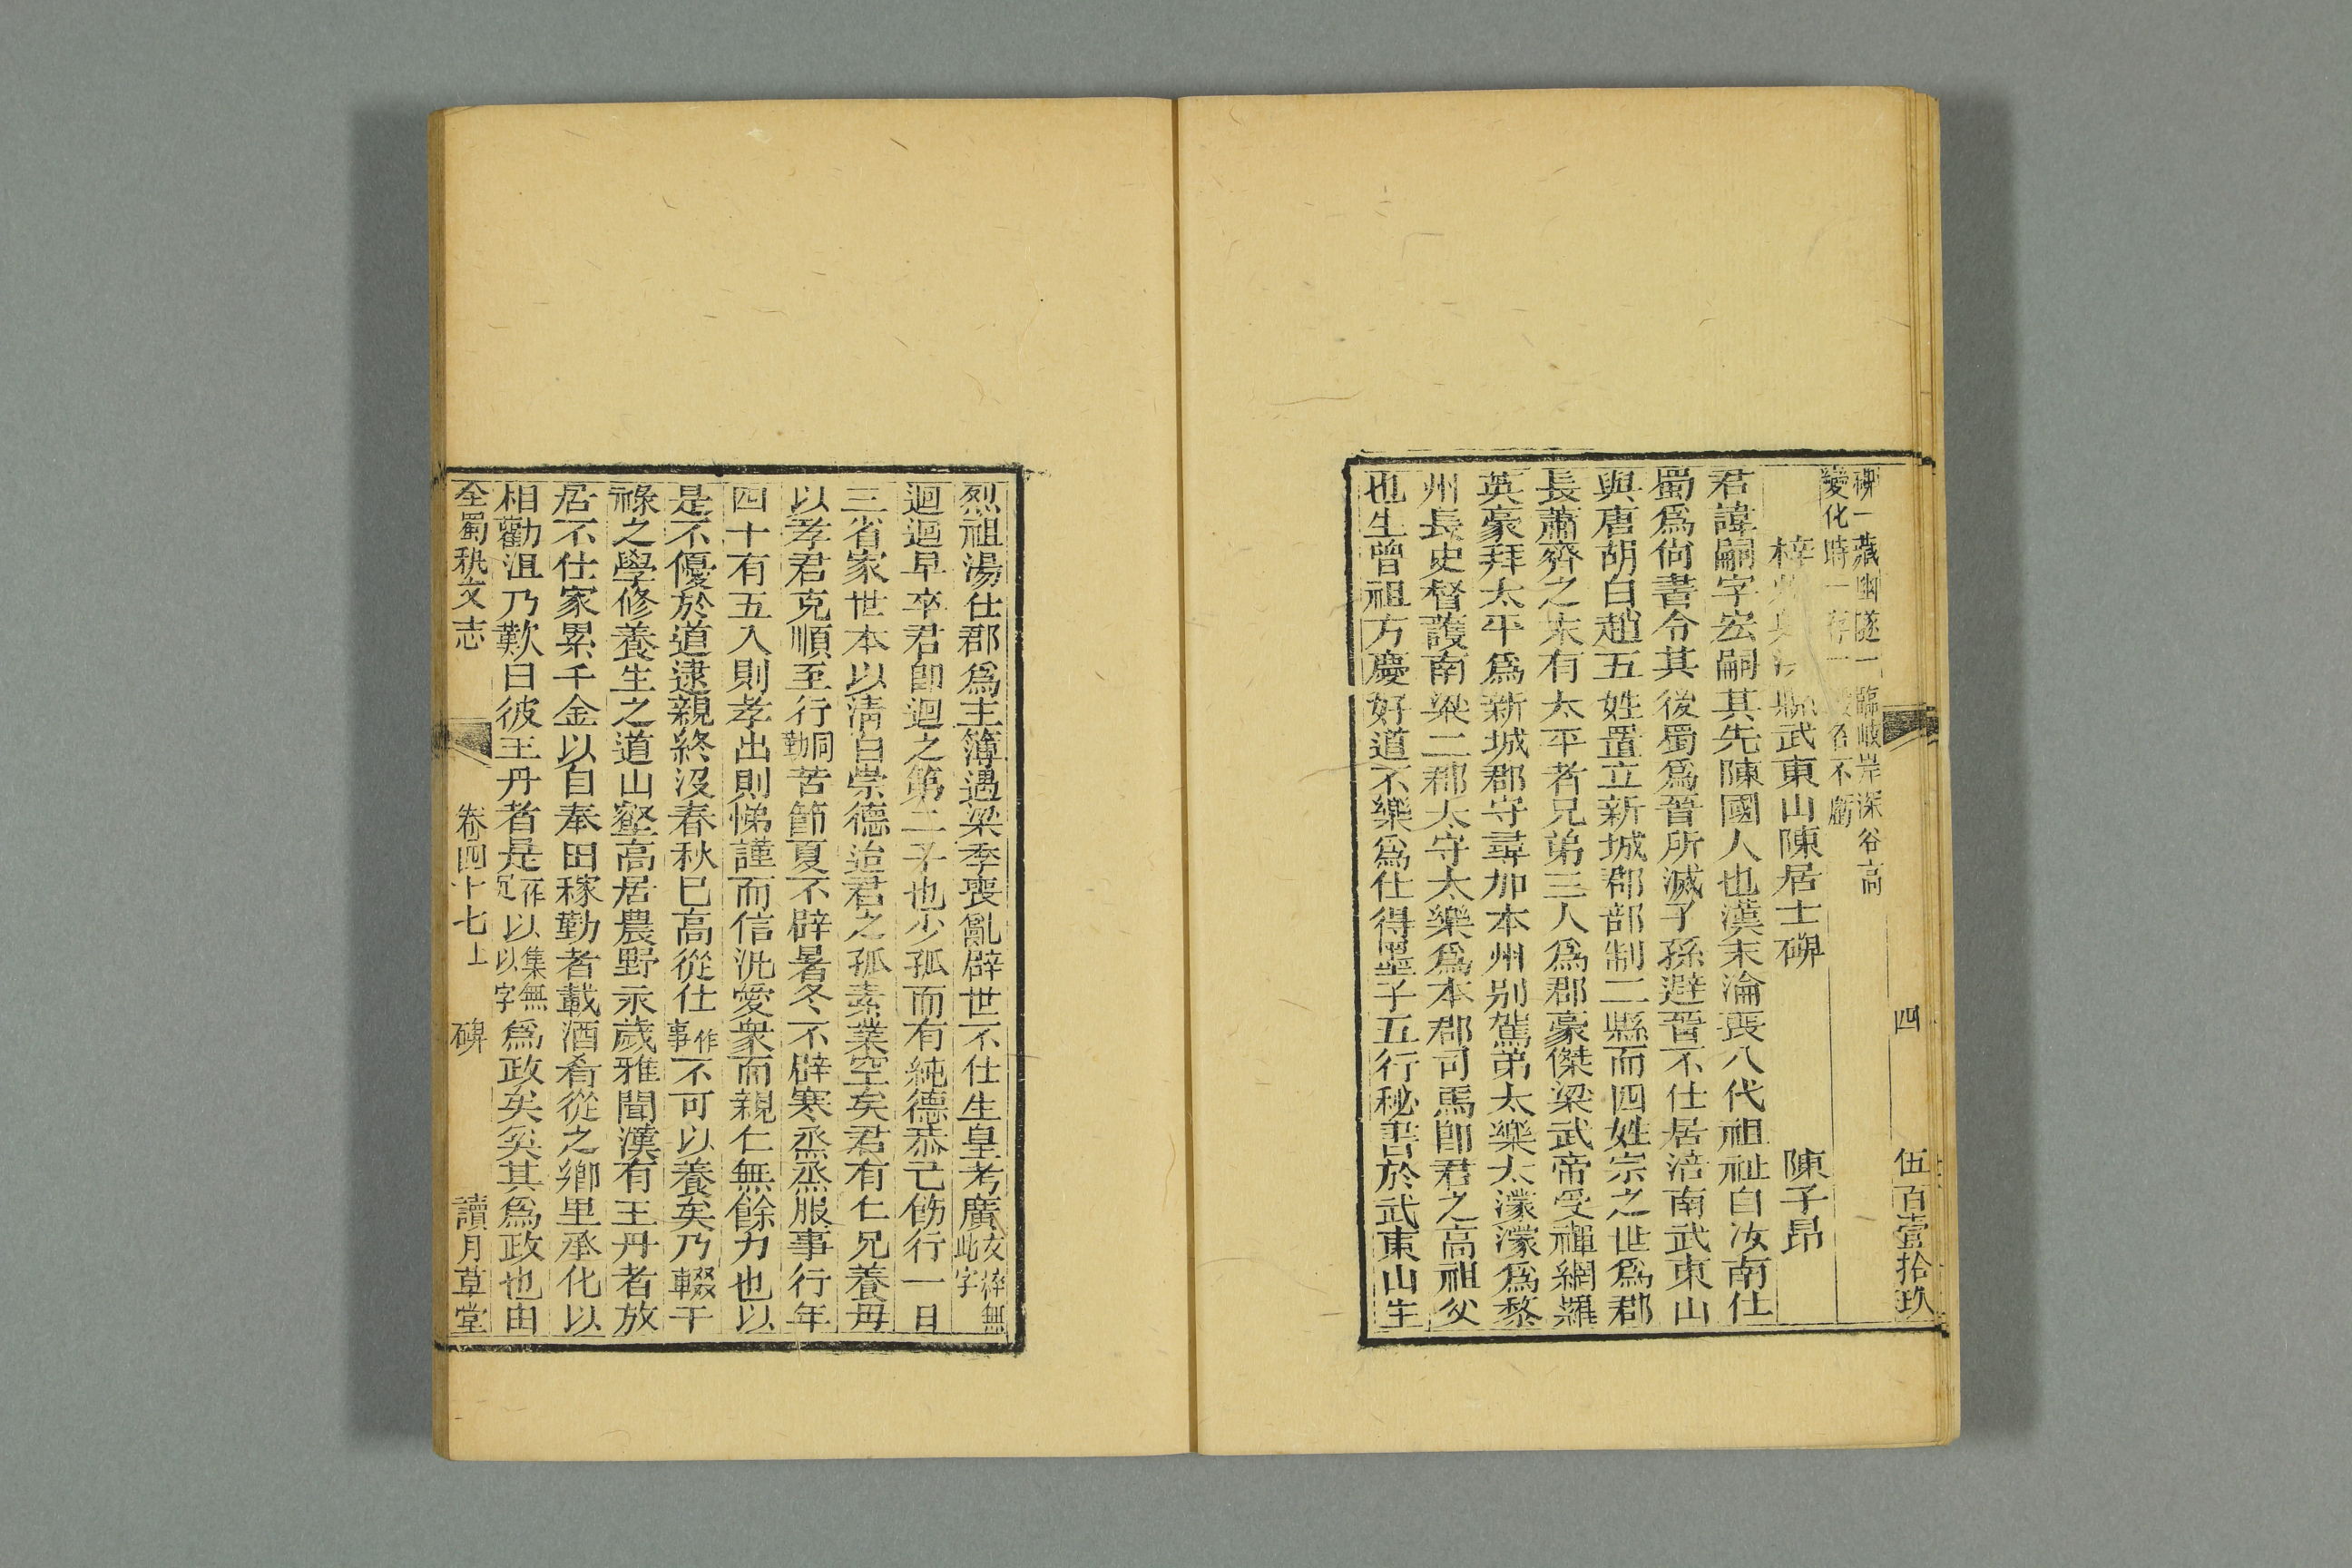 四 伍百壹拾玖
碑一藏幽隧一臨峻岸深谷高
變化時一存一 名不虧
梓 縣武東山陳居士碑 陳子昂
君諱嗣字宏嗣其先陳國人也漢末淪喪八代祖祉自汝南仕
蜀爲尙書令其後蜀爲晉所滅子孫避晉不仕居涪南武東山
與唐胡白趙五姓置立新城郡部制二縣而四姓宗之世爲郡
長蕭齊之末有太平者兄弟三人爲郡豪傑梁武帝受禪網羅
英豪拜太平爲新城郡守尋加本州別駕弟太樂太濛濛爲黎
州長史督護南梁二郡太守太樂爲本郡司馬卽君之高祖父
也生曾祖方慶好道不樂爲仕得墨子五行秘書於武東山生
烈祖湯仕郡爲主簿遇梁季喪亂辟世不仕生皇考廣文粹無此字
迴迴早卒君卽迴之第二子也少孤而有純德恭己飭行一日
三省家世本以淸白崇德迨君之孤素業空矣君有仁兄養毋
以孝君克順至行洞勤苦節夏不辟暑冬不辟寒烝烝服事行年
四十有五入則孝出則悌謹而信汎愛衆而親仁無餘力也以
是不優於道逮親終沒春秋巳高從仕作事不可以養矣乃輟干
祿之學修養生之道山壑高居農野永歲雅聞漢有王丹者放
居不仕家累千金以自奉田稼勤者載酒肴從之鄉里承化以
相勸沮乃歎曰彼王丹者是一作足以集無以字爲政矣奚其爲政也由
全蜀秇文志 卷四十七上 碑 讀月草堂